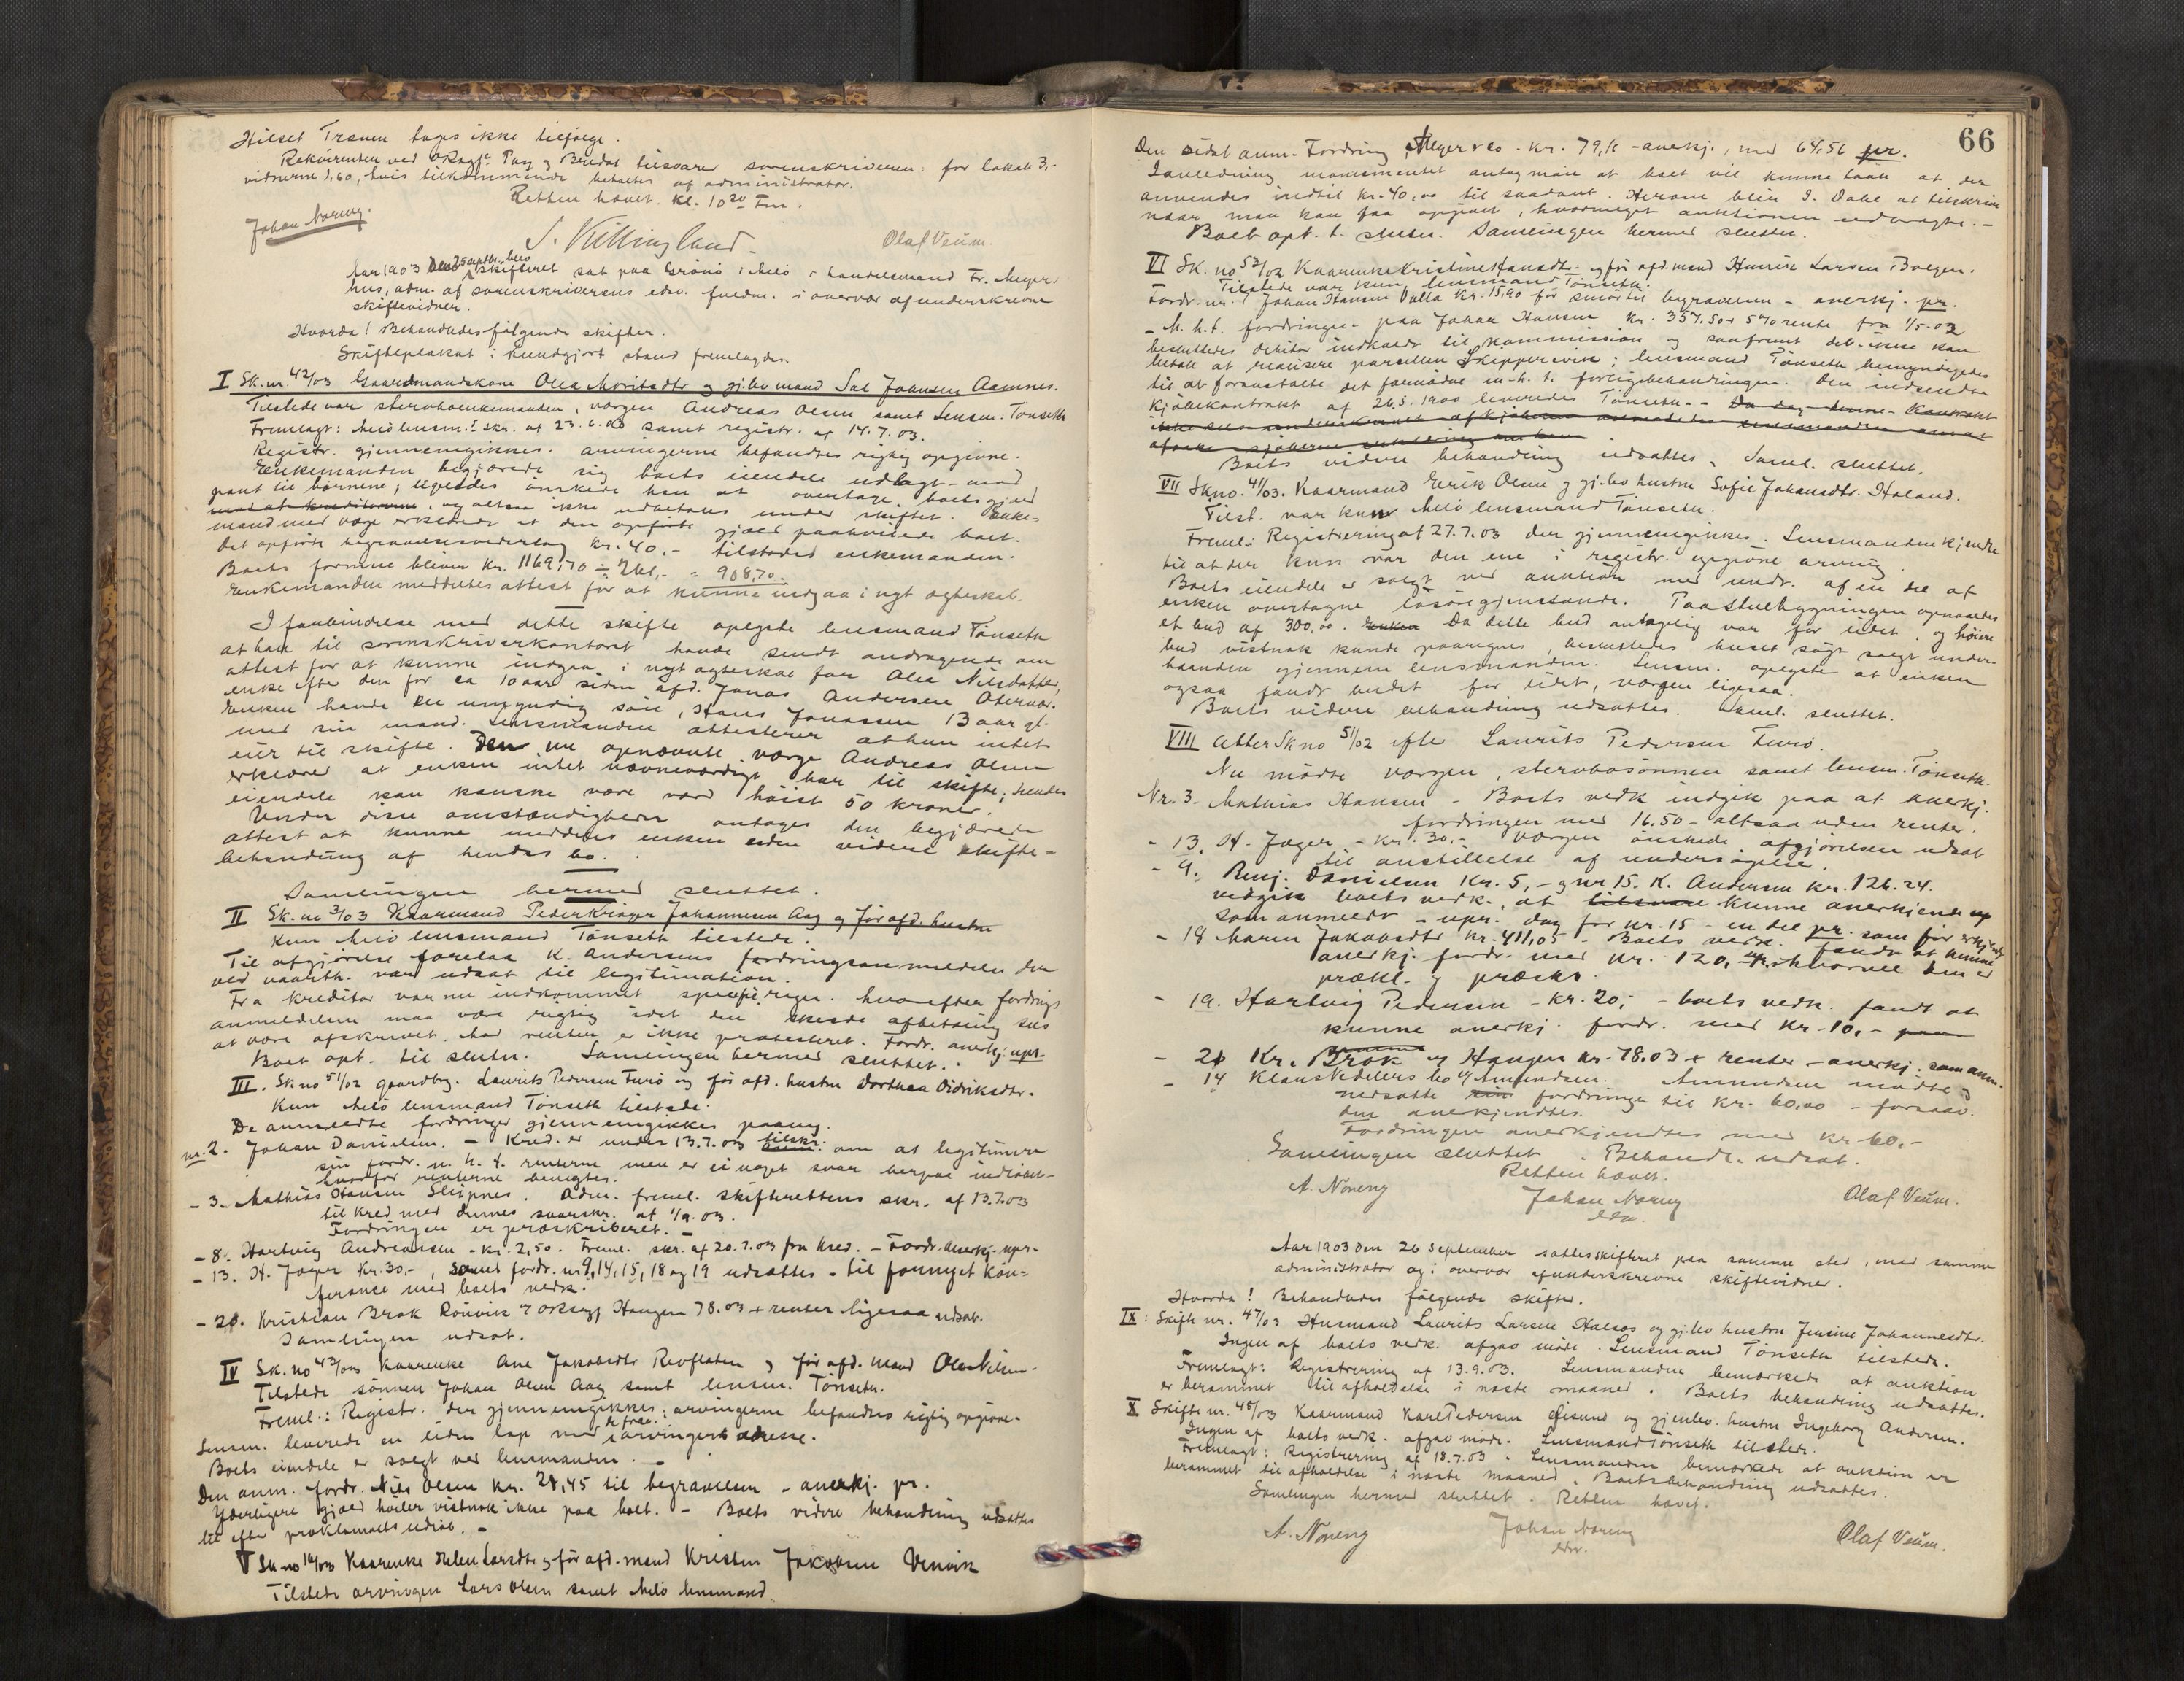 Hilset Tranen tages ikke tilfølge.
Rekvirenten ved ORagf. Pay og Beredal tilsvarer sorenskriveren: for lokale 3,-
vidnerne 1,60, hvis tilkommende betaltes af administrator.
Retten hævet. Kl. 10 20 Fm.
Johan Noreng. S. Killingland. Olaf Veum.
Aar 1903 den 25 septbr. blev skifteret sat paa Grönö i Melö i handelsmand Fr. Meyers
hus, adm. af sorenskriverens edsv. fuldm. i overvær af underskrevne
skiftevidner.
Hvorda! Behandledes følgende skifter.
Skifteplakat i kundgjort stand fremlagdes.
I Sk. nr. 42/03 Gaardmandskone Olea Moritsdtr og gj.lev mand Sal Johnsen Aamnes.
Tilstede var sterboenkemanden, værgen Andreas Olsen samt lensm. Tönseth
Fremlagt: Melö lensm.s skr. af 23.6.03 samt registr. af 14.7.03.
Registr. gjennemgikkes. arvingerne befandtes rigtig opgivne.
Enkemanden begjærede sig boets eiendele udlagt mod
pant til børnene; ligeledes ønskede han at overtage boets gjæld
mod at kreditorerne, og altsaa ikke udbetales under skiftet. Enke=
mand med værge erklærede at den opførte gjæld paahvilede boet.
Det opførte begravelsesvederlag kr. 40,- tilstodes enkemanden.
Boets formue bliver Kr. 1169,70 ÷ 261,- = 908,70.
Enkemanden meddeltes attest for at kunne indgaa i nyt ægteskab.
I forbindelse med dette skifte oplyste lensmand Tönseth
at han til sorenskriverkontoret havde sendt andragende om
attest for at kunne indgaa i nyt ægteskab for Olea Nilsdatter,
enke efter den for ca 10 aar siden afd. Jonas Andersen
Enken havde en umyndig søn, Hans Jonassen 13 aar gl.
med sin mand. Lensmanden attesterer at hun intet
eier til skifte. Den nu opnævnte værge Andreas Olsen
erklærer at enken intet nævneværdigt har til skifte; hendes
eiendele kan kanske være værd høist 50 kroner.
Under disse omstændigheder antages den begjærede
attest at kunne meddeles enken uden videre skifte-
behandling af hendes bo.
Samlingen hermed sluttet.
II Sk. no 3/03 Kaarmand Peder Krøger Johannesen Aag og før afd. hustru
Kun Melö lensmand Tönseth tilstede.
Til afgjørelse forelaa K. Andersens fordringsanmeldelse der
ved vaarth. var udsat til legitimation.
Fra kreditor var nu indkommet specificeringen. hvorefter fordrings
anmeldelsen maa være rigtig idet den skeede afbetaling sees
at være afskrevet. Mod renten er ikke protesteret. Fordr. anerkj. upr.
Boet opt. til slutn. Samlingen hermed sluttet.
III. Sk no 51/02 gaardbr. Laurits Pedersen Furö og før afd. hustru Dorthea Didriksdtr.
Kun Melö lensmand Tönseth tilstede.
De anmeldte fordringer gjennemgikkes paany.
nr. 2. Johan Danielsen. - Kred. er under 13.7.03 tilskr. om at legitimere
sin fordr. m.h.t. renterne men er ei noget svar herpaa indløbet
hvorfor renterne benægtes.
- 3. Mathias Hansen Sleipnes. Adm. freml. skifterettens skr. af 13.7.03
til kred med dennes svarskr. af 1/9.03.
Fordringen er præskriberet. -
- 8. Hartvig Andreassen - kr. 2,50. Freml. skr. af 20.7.03 fra kred. - Fordr. anerkj. upr.
- 13. H. Jager Kr. 30,-, samt fordr. nr 9, 14, 15, 18 og 19 udsattes - til fornyet kon=
ferance med boets vedk.
- 21. Kristian Brok Hangen 78.03 + renter ligesaa udsat.
Samlingen udsat.
IV Sk. no 43/03 Kaarenke Ane Jakobsdtr Revflaten og før afd. mand Ole Nilsen.
Tilstede sønnen Johan Olsen Aag samt lensm. Tönseth.
Freml.: Registr. der gjennemgikkes; arvingerne befandtes rigtig opgivne.
Lensm. leverede en liden lap med de frav. arvingers adresse.
Boets eiendele er solgt ved lensmanden. -
Den anm. fordr. Nils Olsen kr. 28,45 til begravelsen - anerkj. pr.
Yderligere gjæld hviler vistnok ikke paa boet. - Boets videre behandling udsattes
til efter proklamaets udløb. -
V Sk no 14/03 Kaarenke Helene Larsdtr og før afd. mand Kristen Jakobsen Venvik
Tilstede arvingen Lars Olsen samt Melö lensmand.
66
Den sidst anm. Fordring, Meyer & Co - kr. 79,16 - anerkj., med 64.56 pr.
I anledning monumentet antog man at boet vil kunne taale at der
anvendes indtil kr. 40,00 til saadant. Herom blir I. Dahl at tilskrive
naar man kan faa opgivet, hvormeget auktionen indbragte. -
Boet opt. t. slutn. Samlingen hermed sluttet.
VI Sk. no 53/02 Kaarenke Kristine Hansdtr. og før afd. mand Henrik Larsen Bolgen.
Tilstede var kun lensmand Tönseth.
Fordr. nr. 1 Johan Hansen Valla kr. 15,90 for smør til begravelsen - anerkj. pr.
- M. h. t. fordringen paa Johan Hansen kr. 357.50 + 5% rente fra 1/5-02
besluttedes debitor indkaldt til kommission og saafremt deb. ikke kan
betale at realisere parsellen Skippersvik; lensmand Tönseth bemyndigedes
til at foranstalte det fornødne m. h. t. forligsbehandlingen. Den indsendte
kjøbekontrakt af 26.5.1900 leveredes Tönseth. - Da denne Kontrakt
Boets videre behandling udsattes. Saml. sluttet.
VII Sk no. 41/03. Kaarmand Erik Olsen og gj.lev hustru Sofie Johansdtr. Haland.
Tilst. var kun Melö lensmand Tönseth.
Freml: Registrering af 27.7.03 der gjennemgikkes. Lensmanden kjendte
til at der kun var den ene i registr. opgivne arving
Boets eiendele er solgt ved auktion med undt. af en del af
enken overtagne løsøregjenstande. Paa Stuebygningen opnaaedes
et bud af 300,00. Enken Da dette bud antagelig var for lidet, og høiere
bud vistnok kunde paaregnes, besluttedes huset søgt solgt under-
haanden gjennem lensmanden. Lensm. oplyste at enken
ogsaa fandt budet for lidet, værgen ligesaa.
Boets videre behandling udsattes. Saml. sluttet.
VIII Atter Sk no 51/02 efter Laurits Pedersen Furö.
Nu mødte værgen, sterbosønnen samt lensm. Tönseth.
Nr. 3. Mathias Hansen - Boets vedk indgik paa at anerkj.
fordringen med 16.50 - altsaa uden renter.
- 13. H. Jager - kr. 30,- Værgen ønskede afgjørelsen udsat
til anstillelse af undersøgelse.
- 9. Benj. Danielsen Kr. 5,- og nr 15. K. Andersen kr. 126.24.
vedgik boets vedk., at tilsvare kunne anerkjende
som anmeldt - upr. dog for nr. 15 - en del pr. som før erkjendt
- 18 Maren Jakobsdtr kr. 411,05 - Boets vedk. fandt at kunne
anerkj. fordr. med kr. 120,
prækl. og præskr.
- 19. Hartvig Pedersen - kr. 20,- - boets vedk. fandt at
kunne anerkj. fordr. med kr. 10,-
- 21 Kr. Brok og Hangen kr. 78.03 + renter - anerkj. som anm.
- 14 Klaus Nedelers bo v/ Amundsen. Amundsen mødte og
nedsatte sin fordringe til kr. 60,00 - forsaav.
den anerkjendtes.
Fordringen anerkjendtes med kr 60,-
Samlingen sluttet. Behandl. udsat.
Retten hævet.
A. Noreng Johan Noreng Olaf Veum.
edsv.
Aar 1903 den 26 september sattes skifteret paa samme sted, med samme
administrator og i overvær af underskrevne skiftevidner.
Hvorda! Behandledes følgende skifter.
IX: Skifte nr. 47/03 Husmand Laurits Larsen Halsos og gj.lev hustru Jensine Johannesdtr.
Ingen af boets vedk. afgav møde. Lensmand Tönseth tilstede.
Fremlagt: Registrering af 13.9.03. Lensmanden bemærkede at auktion
er berammet til afholdelse i næste maaned. Boets behandling udsattes.
X Skifte nr. 48/03 Kaarmand Karl Pedersen Øisund og gjenlev. hustru Ingeborg Andersen.
Ingen af boets vedk. afgav møde. Lensmand Tönseth tilstede.
Fremlagt: Registrering af 18.7.03. Lensmanden bemærkede at auktion er
berammet til afholdelse i næste maaned. Boets behandling udsattes.
Samlingen hermed sluttet. Retten hævet.
A. Noreng Johan Noreng Olaf Veum.
edsv.